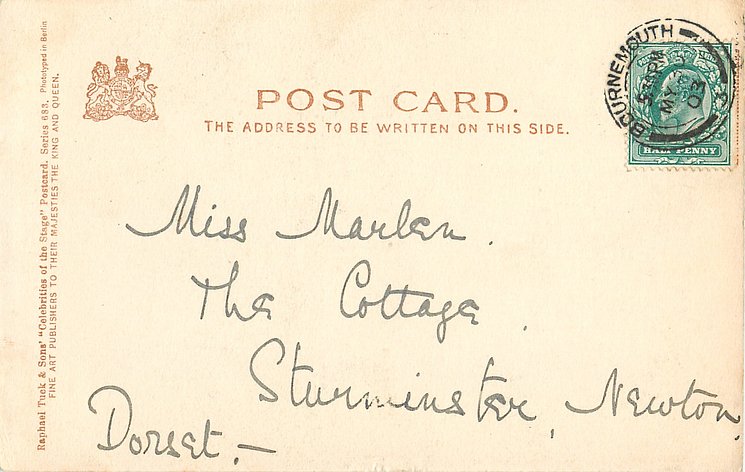 POST CARD.
THE ADDRESS TO BE WRITTEN ON THIS SIDE.
BOURNEMOUTH
MY
03
HALF PENNY
Miss Marlen.
The Cottage,
Sturminster, Newton,
Dorset.—
Raphael Tuck & Sons' "Celebrities of the Stage" Postcard. Series 683. Phototyped in Berlin
FINE ART PUBLISHERS TO THEIR MAJESTIES THE KING AND QUEEN.